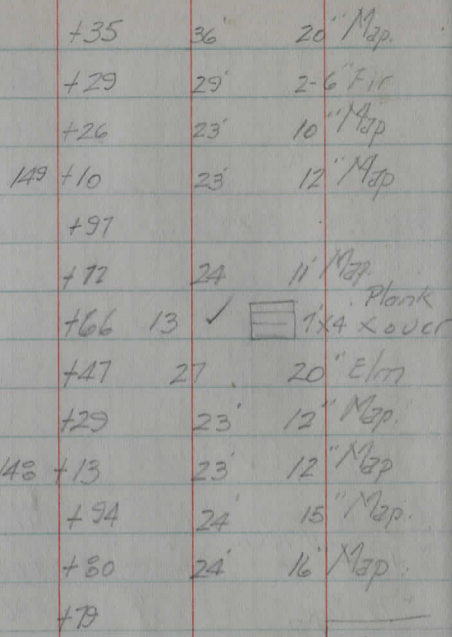 +35 36' 20" Map.
+29 29' 2-6" Fir
+26 23' 10" Map
149 +10 23' 12" Map
+97
+72 24 11" Map.
Plank
+66 13 ✓ 7'x4' x over
+47 27 20" Elm
+29 23' 12" Map.
148 +13 23' 12" Map
+94 24' 15" Map.
+80 24' 16" Map.
+79